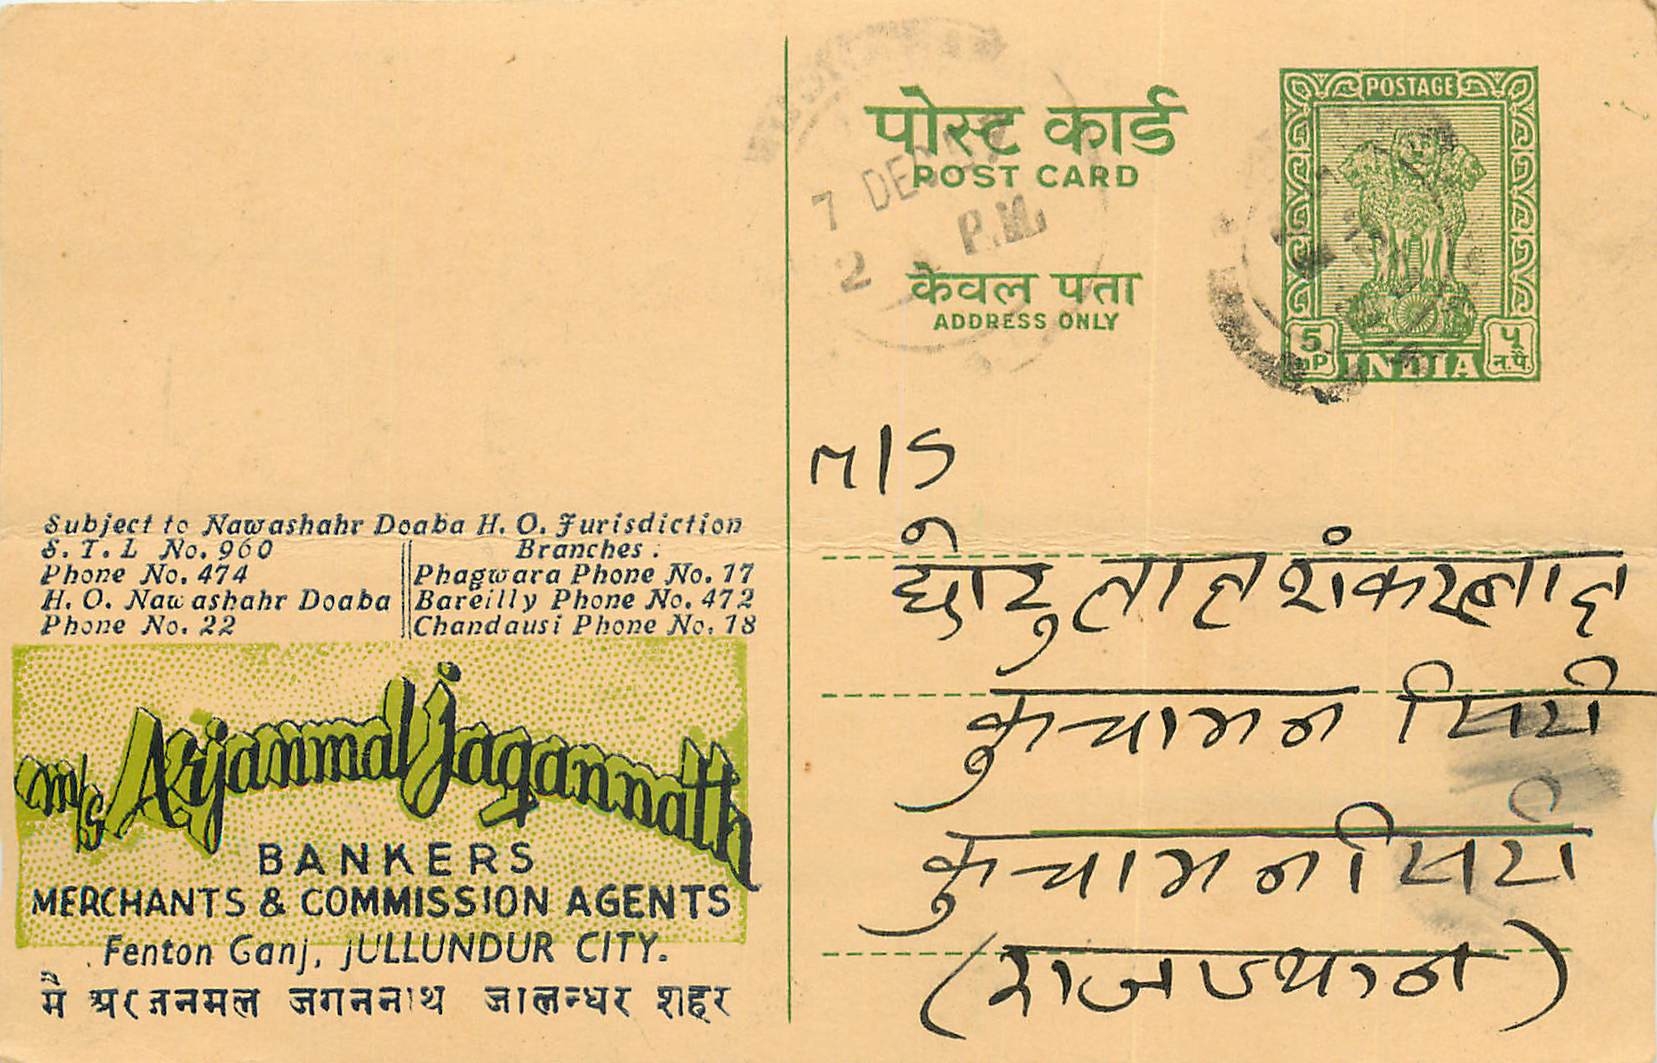 पोस्ट कार्ड
POST CARD
7 DEC
2 P.M.
केवल पता
ADDRESS ONLY
POSTAGE
5 nP
INDIA
५ न.पै.
M/S
शंकरलाल
कुचामन सिटी
कुचामन सिटी
(राजस्थान)
Subject to Nawashahr Doaba H. O. Jurisdiction
S. T. L No. 960
Phone No. 474
H. O. Nawashahr Doaba
Phone No. 22
Branches :
Phagwara Phone No. 17
Bareilly Phone No. 472
Chandausi Phone No. 18
m/s Arjanmal Jagannath
BANKERS
MERCHANTS & COMMISSION AGENTS
Fenton Ganj, JULLUNDUR CITY.
मै अरजनमल जगननाथ जालन्धर शहर